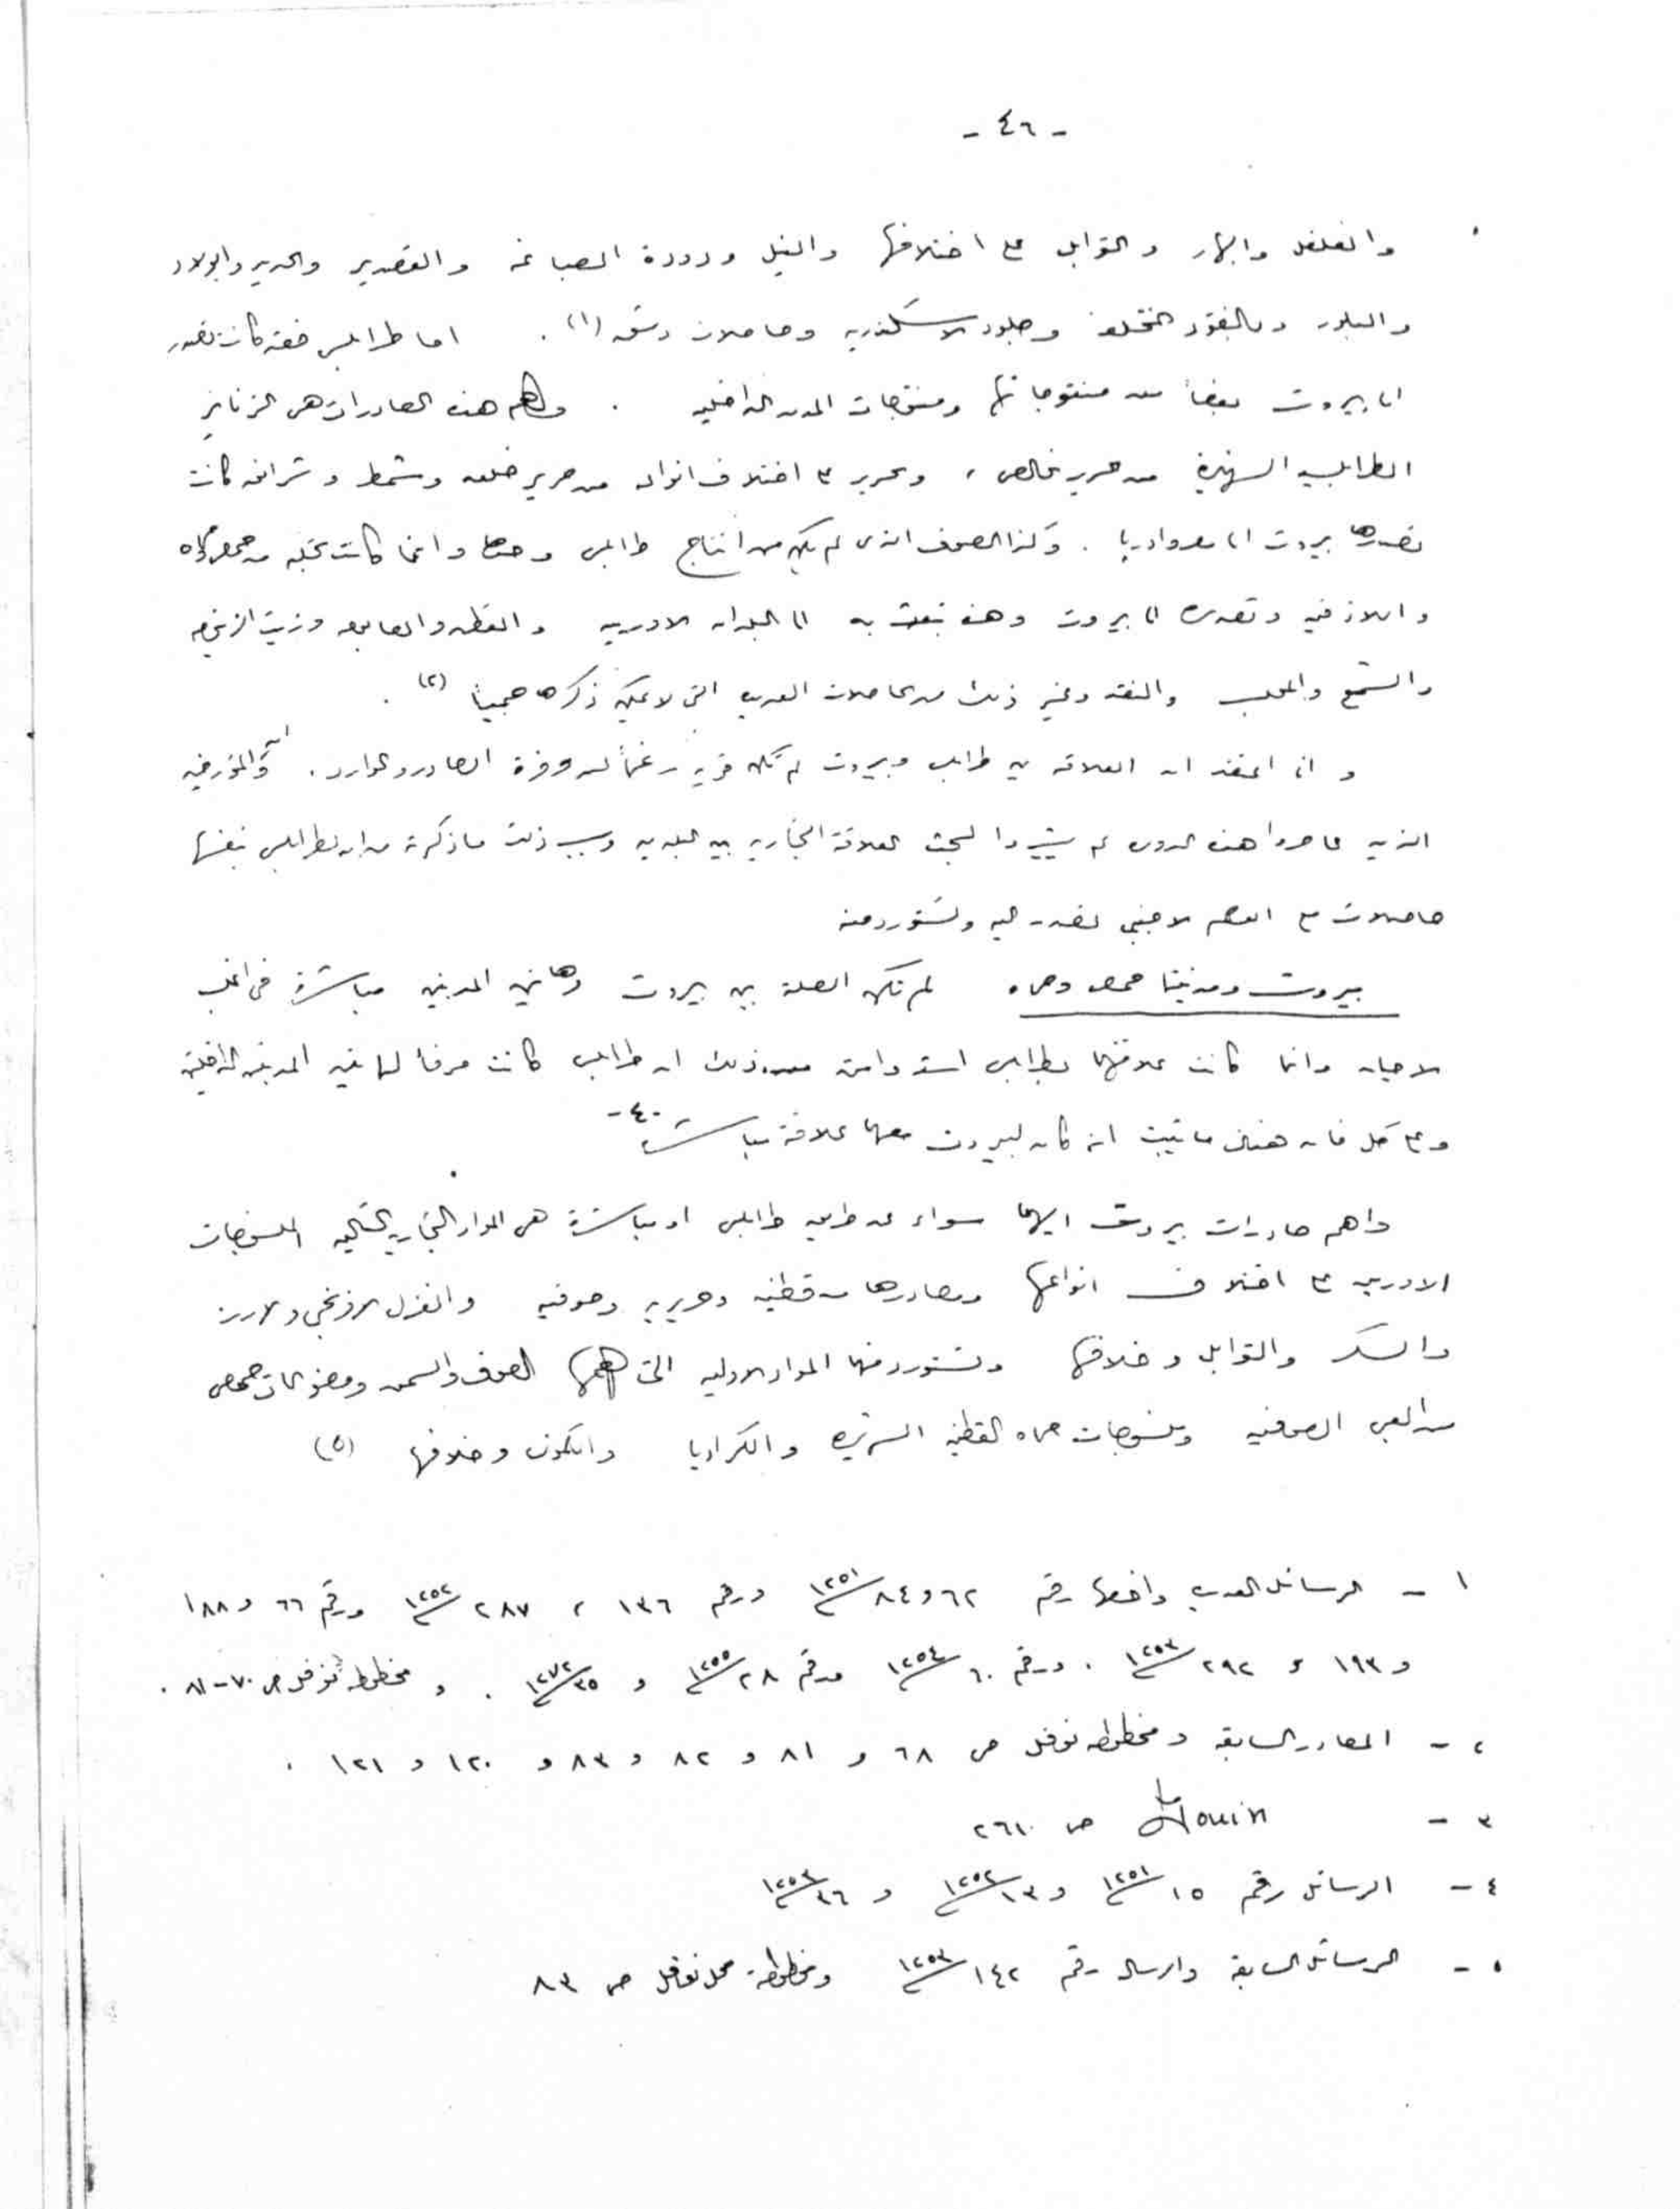 - ٤٦ -
والفلفل والبهار والتوابل على اختلافها والنيل ودودة الصباغه والقصدير والحرير والبولاد
والبلور وبالنقود المختلفه وجلود الاسكندريه وحاصلات دمشق (١) . اما طرابلس فقد كانت تصدر
الى بيروت بعضاً من منتوجاتها ومنتوجات المدن الداخليه . واهم هذه الصادرات هى الزنانير
الطرابلسيه الشهيرة من حرير خالص ، وحرير على اختلاف انواعه من حرير وشمط و كانت
تصدرها بيروت الى مصر واوربا . وكذا الصوف الذى لم يكن من انتاج طرابلس وحدها وانما كانت تجلبه من حمص وحماه
واللاذقيه وتصدره الى بيروت وهذه تبعث به الى البلدان الاوربيه . والقطن والصابون وزيت الزيتون
والشمع والنقد وغير ذلك من حاصلات العرب التى لا يمكن ذكرها جميعاً (٢) .
و انى اعتقد ان العلاقه بين طرابلس وبيروت لم تكن قويه رغماً عن وفرة الصادر والوارد . والمؤرخين
الذين عاصروا هذه الدور لم يشيروا لبحث العلاقة التجاريه بين البلدين وسبب ذلك ما ذكرته من ان لطرابلس نفسها
حاصلات مع العالم الاجنبي تصدر اليه وتستورد منه
بيروت ومدينتا حمص وحماه لم تكن الصلة بين بيروت وهاتين المدينتين مباشرة فى اغلب
الاحيان وانما كانت علاقتهما بطرابلس اشد وامتن من ذلك ان طرابلس كانت مرفأ لهاتين المدينتين الداخليتين
وعلى كل فان هناك ما يثبت انه كان لبيروت معهما علاقة مباشرة -٤-
واهم صادرات بيروت اليهما سواء عن طريق طرابلس او مباشرة هى المواد التجاريه التاليه المنسوجات
الاوربيه على اختلاف انواعها ومصادرها من قطنيه وحريريه وصوفيه والغزل الافرنجي والارز
والسكر والتوابل وخلافها وتستورد منهما المواد الاوليه التى اهمها الصوف والسمن ومصنوعات حمص
من العبى الصوفيه ومنسوجات حماه القطنيه الشهيره والكراويا والكمون وخلافها (٥)
١ - الرسائل العربيه واخصها رقم ٦٢ و ٨٤/١٢٥١ ورقم ١٣٦ ، ٢٨٧/١٢٥٢ ورقم ٦٦ و ١٨٨
و ١٩٣ و ٢٩٢/١٢٥٣ . ورقم ٦٠/١٢٥٤ ورقم ٢٨/١٢٥٥ و ٣٥/١٢٧٢ . و مخطوطه نوفل ص ٧٠-٨١ .
٢ - المصادر السابقه ومخطوطه نوفل ص ٦٨ و ٨١ و ٨٢ و ٨٣ و ١٢٠ و ١٢١ .
٣ - ص ٢٦١
٤ - الرسائل رقم ١٥/١٢٥١ و ١٣/١٢٥٢ و ٣٦/١٢٥٣
٥ - الرسائل السابقه والرساله رقم ١٤٢/١٢٥٣ ومخطوطة نوفل ص ٨٣